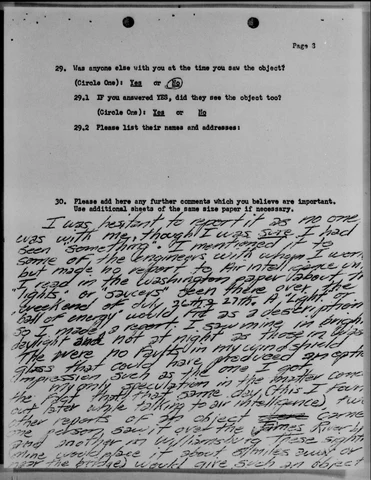 Page 3
29. Was anyone else with you at the time you saw the object?
(Circle One): Yes or No
29.1 IF you answered YES, did they see the object too?
(Circle One): Yes or No
29.2 Please list their names and addresses:
30. Please add here any further comments which you believe are important.
Use additional sheets of the same size paper if necessary.
I was hesitant to report it as no one
was with me, though I was sure I had
seen "something". I mentioned it to
some of the engineers with whom I work
but made no report to Air intelligence until
I read in the Washington paper about the
"lights" or saucers seen there over the
weekend of July 26th & 27th. A "Light
ball of energy" would fit as a description
so I made a report. I saw mine in bright
daylight and not at night as those in Wash.
There were no faults in my windshield
glass that could have produced
impression such as the one I got.
My only speculation in the matter
the fact that that same day (this I found
out later while talking to air intelligence) two
other reports of an object came
one person saw it over the James River
and another in Williamsburg. These sight
mine would place it about miles
near the bridge) would give such an object